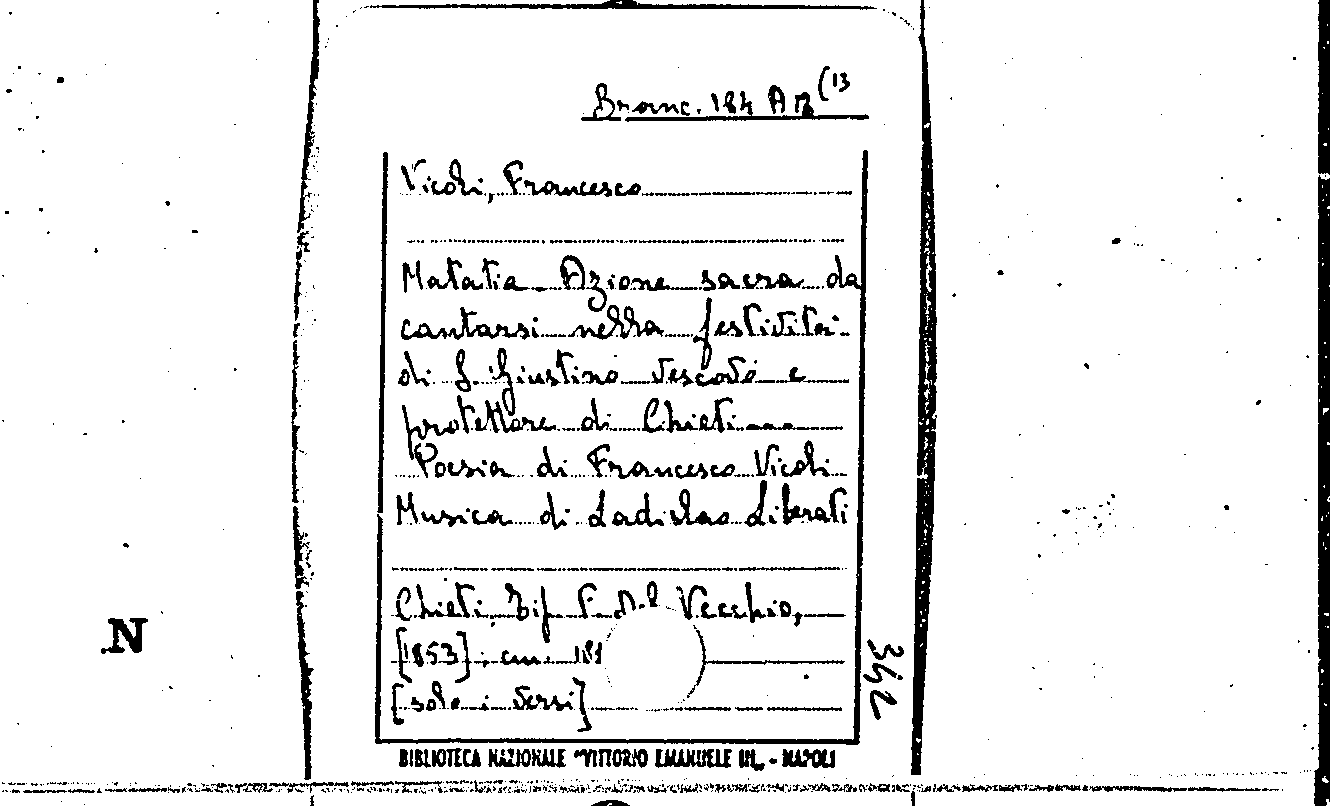 Branc. 184 A 12 (13
Vicoli, Francesco
Matatia - Azione sacra da
cantarsi nella festività
di S. Giustino vescovo e
protettore di Chieti ...
Poesia di Francesco Vicoli
Musica di Ladislao Liberati
Chieti, Tip. F. Del Vecchio,
[1853]; cm. 181
[solo i versi]
342
N
BIBLIOTECA NAZIONALE "VITTORIO EMANUELE III„ - NAPOLI